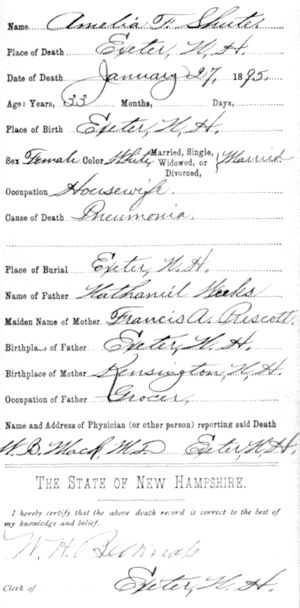 Name Amelia F. Shute.
Place of Death Exeter, N. H.
Date of Death January 27, 1895.
Age: Years, 33 Months, Days,
Place of Birth Exeter, N. H.
Sex Female Color White Married, Single, Widowed, or Divorced, } Married
Occupation Housewife.
Cause of Death Pneumonia.
Place of Burial Exeter, N. H.
Name of Father Nathaniel Weeks
Maiden Name of Mother Francis A. Prescott.
Birthplace of Father Exeter, N. H.
Birthplace of Mother Kensington, N. H.
Occupation of Father Grocer.
Name and Address of Physician (or other person) reporting said Death
W. B. Mack, M. D. Exeter, N. H.
THE STATE OF NEW HAMPSHIRE.
I hereby certify that the above death record is correct to the best of
my knowledge and belief.
W. H. Belknap
Clerk of Exeter, N. H.